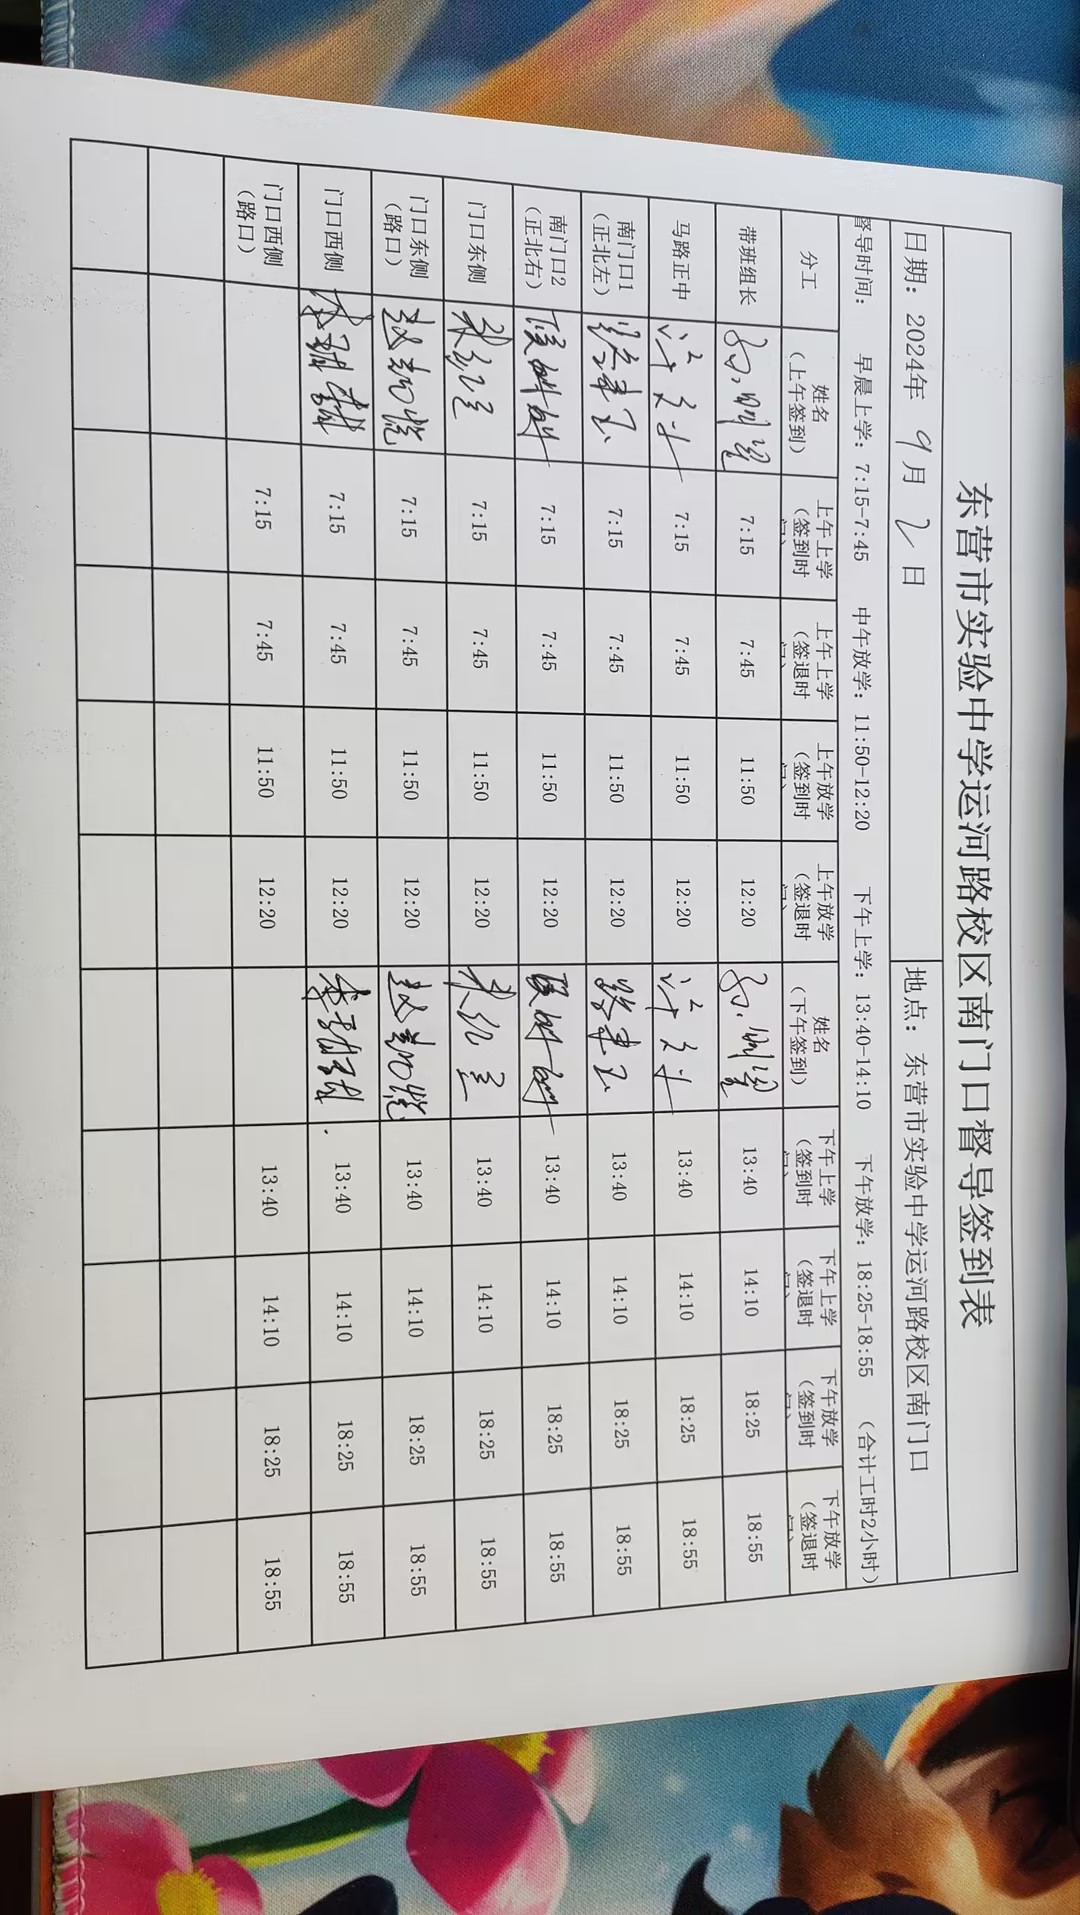 东营市实验中学运河路校区南门口督导签到表
日期：2024年 9月 2日 地点：东营市实验中学运河路校区南门口
督导时间： 早晨上学：7:15-7:45 中午放学：11:50-12:20 下午上学：13:40-14:10 下午放学：18:25-18:55 （合计工时2小时）
分工 姓名（上午签到） 上午上学（签到时 上午上学（签退时 上午放学（签到时 上午放学（签退时 姓名（下午签到） 下午上学（签到时 下午上学（签退时 下午放学（签到时 下午放学（签退时
带班组长 7:15 7:45 11:50 12:20 13:40 14:10 18:25 18:55
马路正中 7:15 7:45 11:50 12:20 13:40 14:10 18:25 18:55
南门口1（正北左） 7:15 7:45 11:50 12:20 13:40 14:10 18:25 18:55
南门口2（正北右） 7:15 7:45 11:50 12:20 13:40 14:10 18:25 18:55
门口东侧 7:15 7:45 11:50 12:20 13:40 14:10 18:25 18:55
门口东侧（路口） 赵凯悦 7:15 7:45 11:50 12:20 赵凯悦 13:40 14:10 18:25 18:55
门口西侧 7:15 7:45 11:50 12:20 13:40 14:10 18:25 18:55
门口西侧（路口） 7:15 7:45 11:50 12:20 13:40 14:10 18:25 18:55